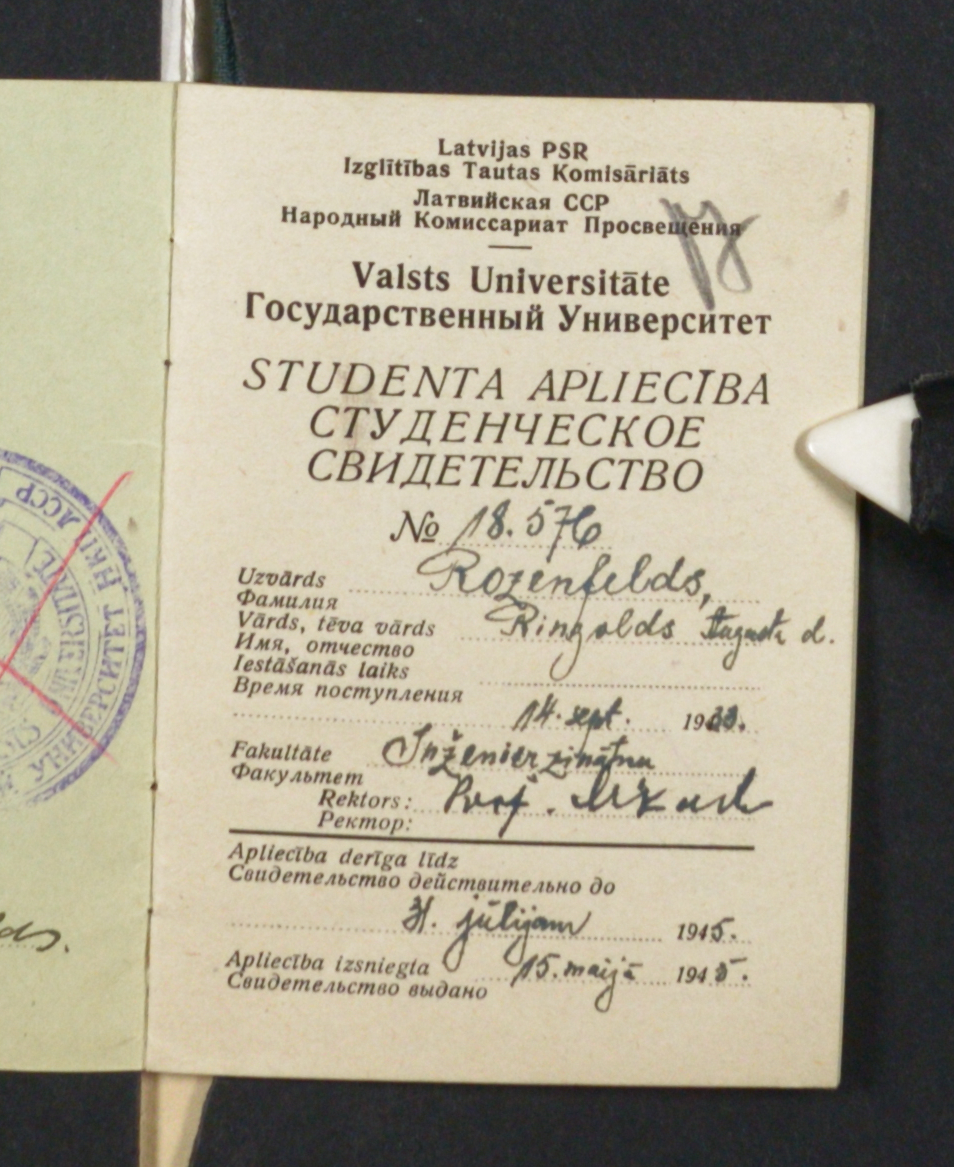 Latvijas PSR
Izglītības Tautas Komisāriāts
Латвийская ССР
Народный Комиссариат Просвещения
Valsts Universitāte
Государственный Университет
STUDENTA APLIECĪBA
СТУДЕНЧЕСКОЕ
СВИДЕТЕЛЬСТВО
№ 18.576
Uzvārds Rozenfelds,
Фамилия
Vārds, tēva vārds Ringolds Augusta d.
Имя, отчество
Iestāšanās laiks
Время поступления
14. sept. 1933.
Fakultāte Inženierzinātņu
Факультет
Rektors: Prof.
Ректор:
Apliecība derīga līdz
Свидетельство действительно до
31. jūlijam 1945.
Apliecība izsniegta 15. maijā 1945.
Свидетельство выдано
УНИВЕРСИТЕТ НКП ЛССР
ds.